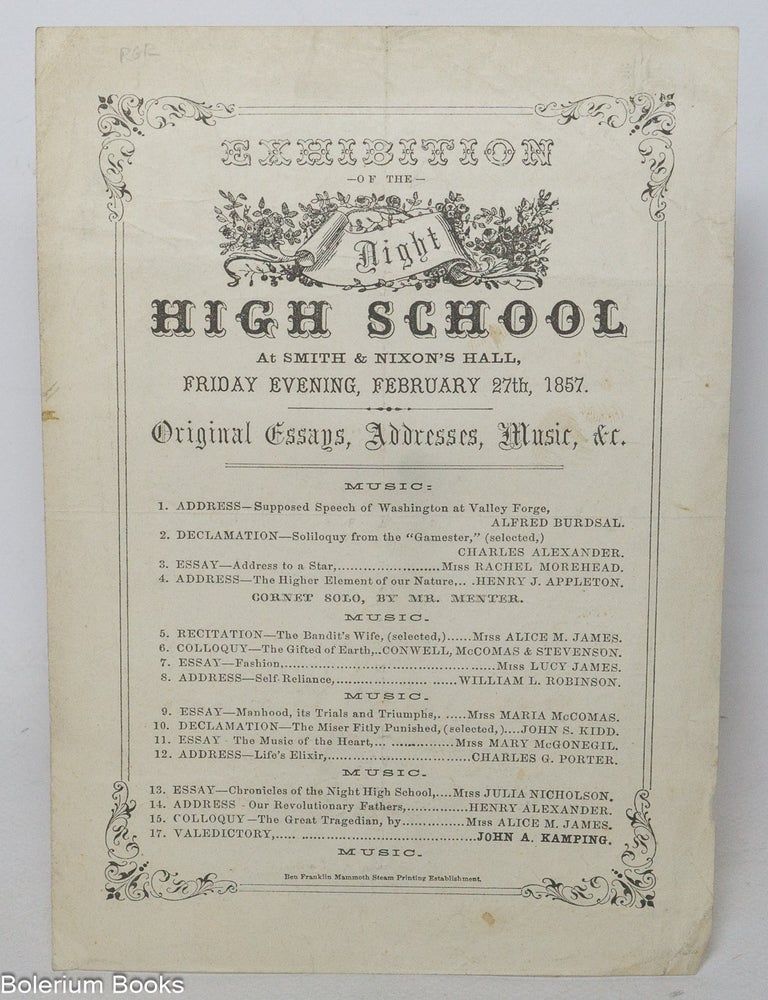 PGR
EXHIBITION
—OF THE—
Night
HIGH SCHOOL
At SMITH & NIXON'S HALL,
FRIDAY EVENING, FEBRUARY 27th, 1857.
Original Essays, Addresses, Music, &c.
MUSIC:
1. ADDRESS—Supposed Speech of Washington at Valley Forge,
ALFRED BURDSAL.
2. DECLAMATION—Soliloquy from the "Gamester," (selected,)
CHARLES ALEXANDER.
3. ESSAY—Address to a Star,........................Miss RACHEL MOREHEAD.
4. ADDRESS—The Higher Element of our Nature,.. .HENRY J. APPLETON.
CORNET SOLO, BY MR. MENTER.
MUSIC.
5. RECITATION—The Bandit's Wife, (selected,)......Miss ALICE M. JAMES.
6. COLLOQUY—The Gifted of Earth,..CONWELL, McCOMAS & STEVENSON.
7. ESSAY—Fashion,..................................................Miss LUCY JAMES.
8. ADDRESS—Self-Reliance,.................... ......WILLIAM L. ROBINSON.
MUSIC.
9. ESSAY—Manhood, its Trials and Triumphs,. .....Miss MARIA McCOMAS.
10. DECLAMATION—The Miser Fitly Punished, (selected,)....JOHN S. KIDD.
11. ESSAY - The Music of the Heart,... ..............Miss MARY McGONEGIL.
12. ADDRESS—Life's Elixir,.......................................CHARLES G. PORTER.
MUSIC.
13. ESSAY—Chronicles of the Night High School,....Miss JULIA NICHOLSON.
14. ADDRESS - Our Revolutionary Fathers,.............HENRY ALEXANDER.
15. COLLOQUY—The Great Tragedian, by..............Miss ALICE M. JAMES.
17. VALEDICTORY,..... ........................................JOHN A. KAMPING.
MUSIC.
Ben Franklin Mammoth Steam Printing Establishment.
Bolerium Books